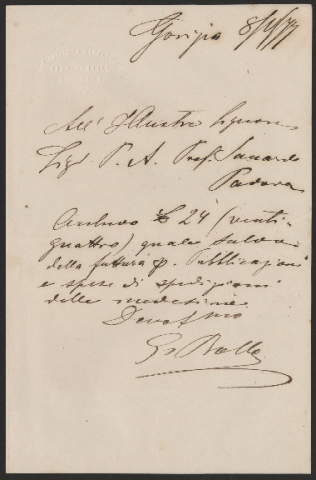 Gorizia 8/4/77
All' Illustre Signore
Sigr P. A. Prof. Saccardo
Padova
Accludo £ 24 (venti-
quattro) quale saldo
della fattura p. Pubblicazioni
e spese di spedizioni
delle medesime
Devotmo